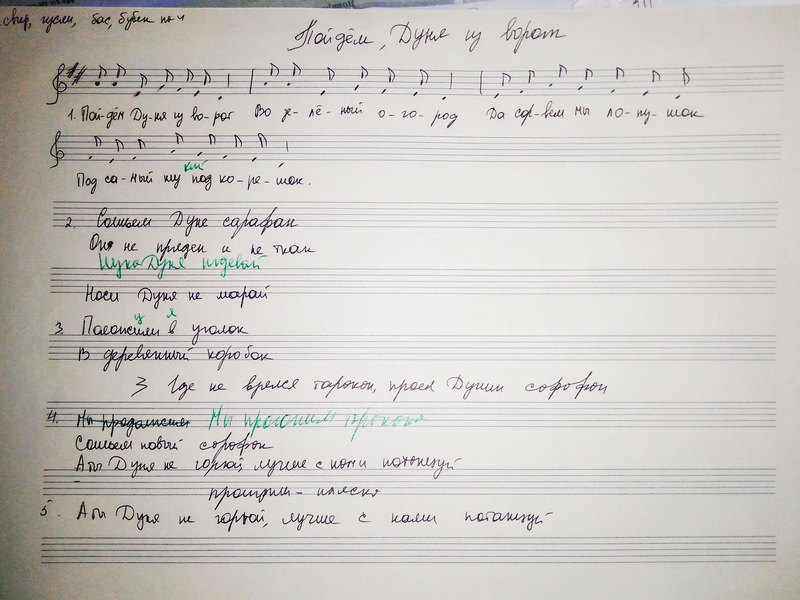 свир, гусли, бас, бубен
Пойдём, Дуня из ворот
1. Пой-дём Ду-ня из во-рот Во зе-лё-ный о-го-род Да сор-вем мы ло-пу-шок
кий
Под са-мый под ко-ре-шок.
2. Сошьем Дуне сарафан
Он не пряден и не ткан
Нука Дуня подевай
Носи Дуня не марай
3. Положили в уголок
В деревянный коробок
3 Где не взялся таракан, проел Дунин сорофон
4. Мы Мы прогоним
Сошьем новый сорофон
А ты Дуня не горюй, лучше с нами потонцуй
проигрыш - пляска
5. А ты Дуня не горюй, лучше с нами потанцуй